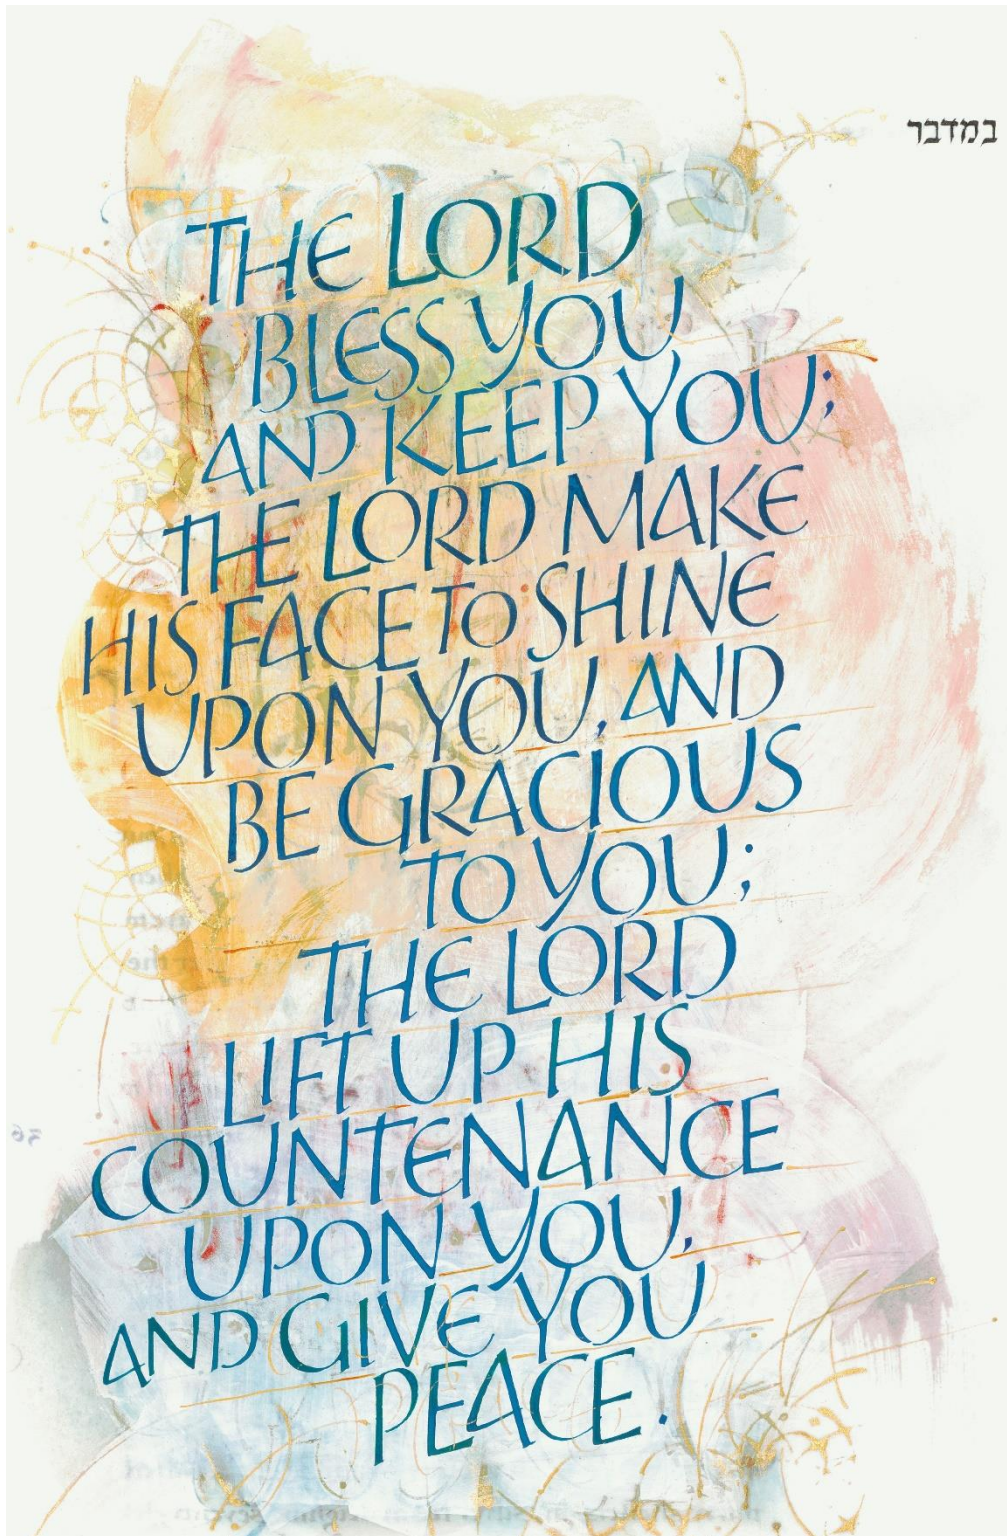 במדבר
THE LORD
BLESS YOU
AND KEEP YOU;
THE LORD MAKE
HIS FACE TO SHINE
UPON YOU, AND
BE GRACIOUS
TO YOU;
THE LORD
LIFT UP HIS
COUNTENANCE
UPON YOU,
AND GIVE YOU
PEACE.